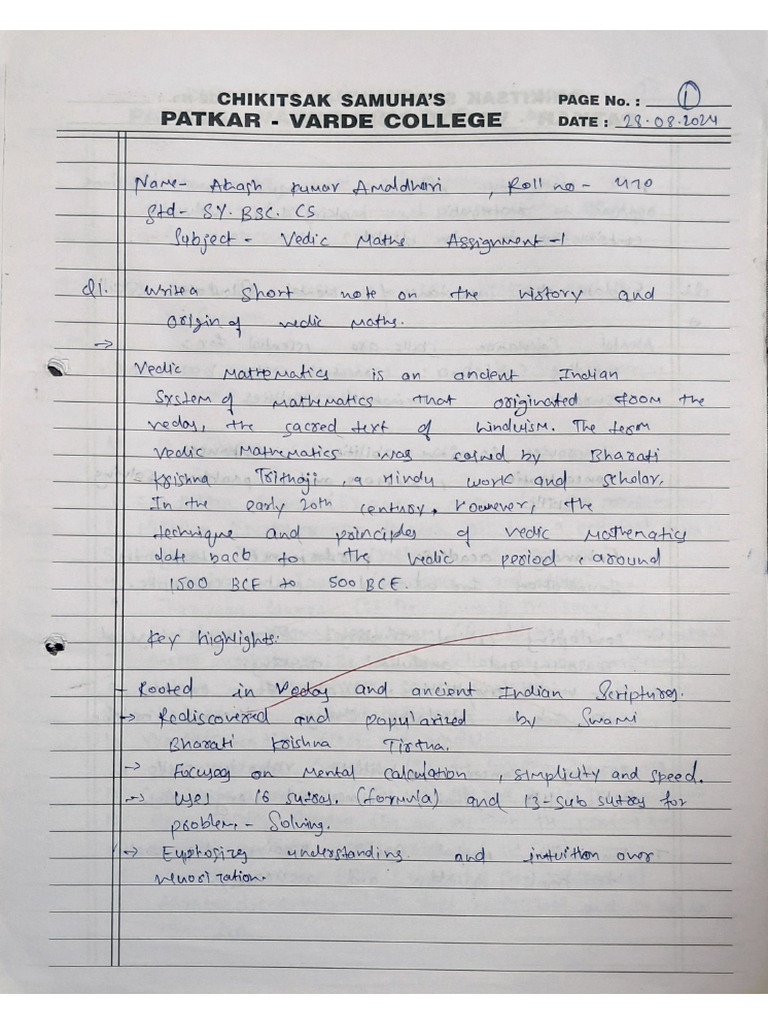 CHIKITSAK SAMUHA'S
PATKAR - VARDE COLLEGE
PAGE No. : 1
DATE : 28.08.2024
Name- Akash Kumar , Roll no - 410
Std- SY. BSC. CS
Subject - Vedic Maths Assignment -1
Q1. Write a short note on the History and
Origin of vedic Maths.
→
Vedic Mathematics is an ancient Indian
System of Mathematics that originated from the
vedas, the sacred text of Hinduism. The term
vedic Mathematics was coined by Bharati
Krishna Trithaji, a Hindu work and scholar.
In the early 20th century. However, the
technique and principles of vedic Mathematics
date back to the vedic period, around
1500 BCE to 500 BCE.
Key Highlights:
- Rooted in Vedas and ancient Indian Scriptures.
→ Rediscovered and popularized by Swami
Bharati Krishna Tirtha.
→ Focuses on Mental calculation, simplicity and speed.
→ Uses 16 sutras. (formula) and 13-sub sutras for
problem - Solving.
→ understanding and intuition over